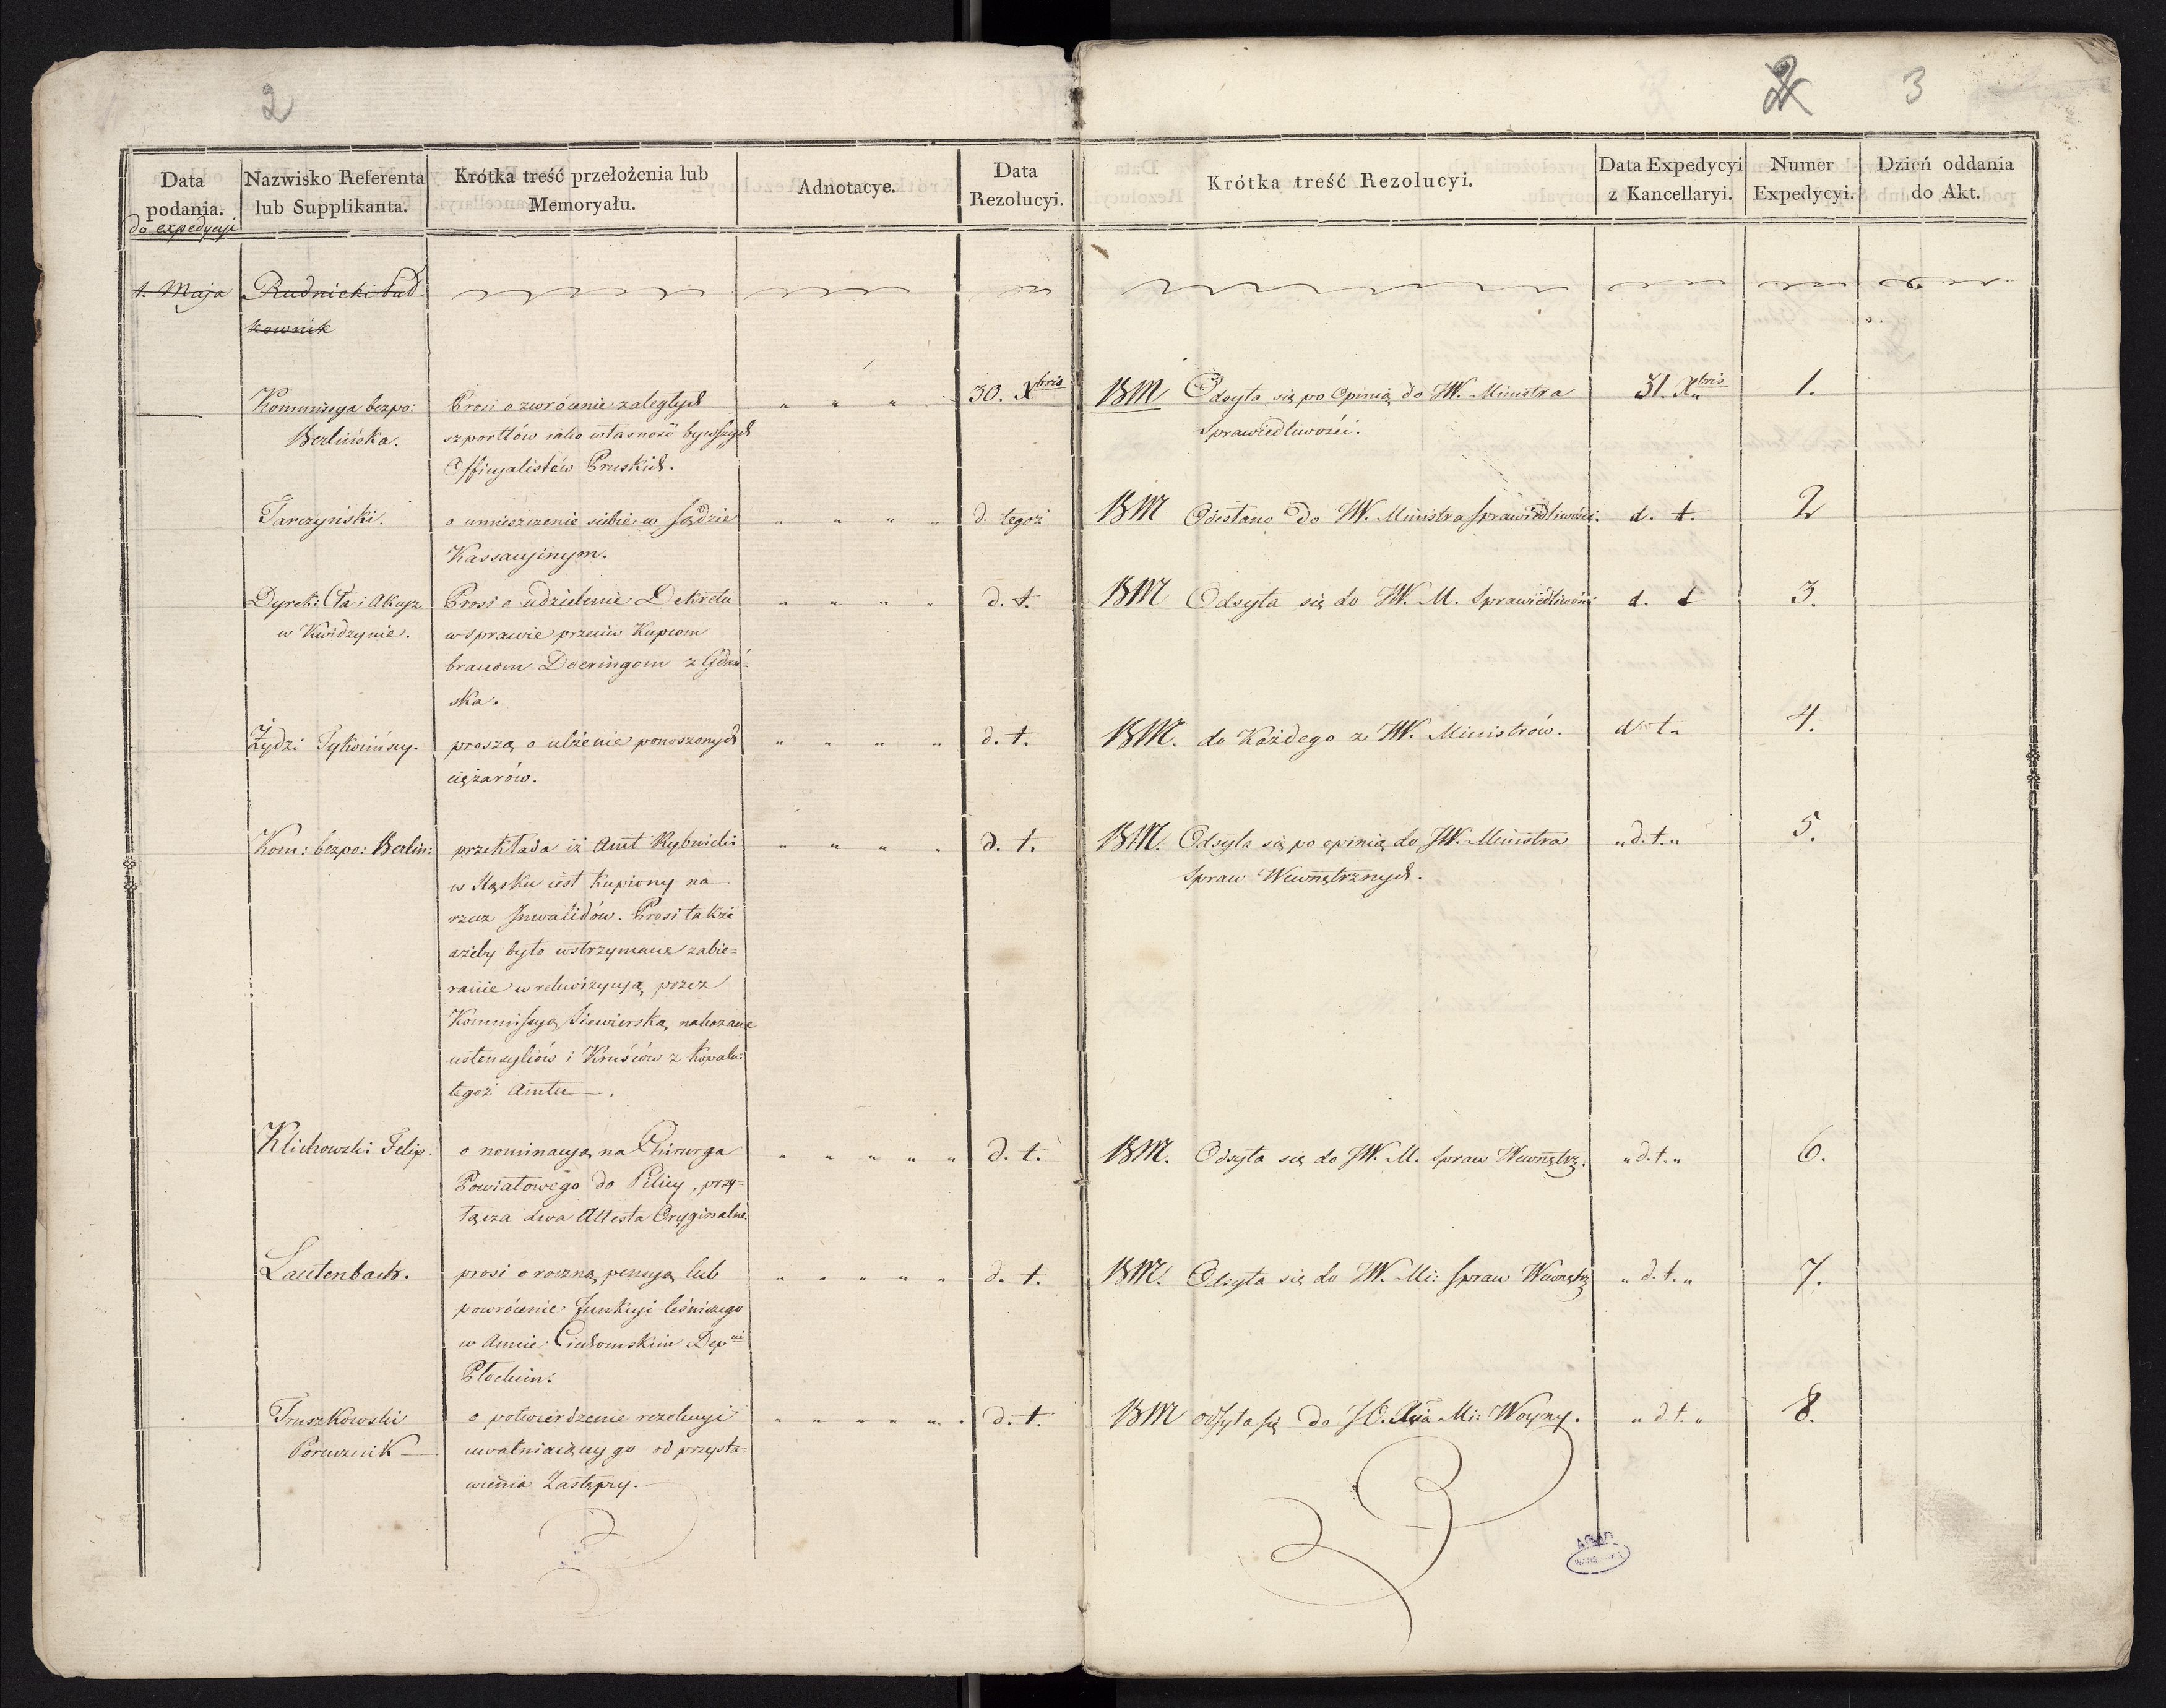 2
2
3
Data podania. do expedycyi
Nazwisko Referenta lub Supplikanta.
Krótka treść przełożenia lub Memoryału.
Adnotacye.
Data Rezolucyi.
Krótka treść Rezolucyi.
Data Expedycyi z Kancellaryi.
Numer Expedycyi.
Dzień oddania do Akt.
1. Maja Rudnicki Puł
kownik
Kommissya bezpo: Prosi o zwrócenie zaległych " " " 30. Xbris BM Odsyła się po Opinią do JW. Ministra 31. Xbris 1.
Berlińska. szportlów iako własność bywszych Sprawiedliwości.
Officyalistów Pruskich.
Tarczyński. o umieszczenie siebie w Sądzie " " " " d. tegoż BM Odesłano do JW. Ministra Sprawiedliwości. d. t. 2
Kassacyinym.
Dyrek: Cła i Akcyz Prosi o udzielenie Dekretu " " " " d. t. BM Odsyła się do JW. M. Sprawiedliwości d. t 3.
w Kwidzynie. w sprawie przeciw Kupcom
braciom Doeringom z Gdań=
ska.
Żydzi Tykocińscy. proszą o ulżenie ponoszonych " " " " d. t. BM. do Każdego z JW. Ministrów. d. t. 4.
ciężarów.
Kom: bezpo: Berlin: przekłada iż Amt Rybnicki " " " " d. t. BM. Odsyła się po opinią do JW. Ministra " d. t. " 5.
w Sląsku iest Kupiony na Spraw Wewnętrznych.
rzecz Inwalidów. Prosi także
ażeby było wstrzymane zabie=
ranie w rekwizycyą przez
Kommissyą Siewierską nakazane
ustensyliów i Kruśców z Kopaln:
tegoż Amtu.
Klichowski Felip. o nominacyą na Chirurga " " " " " d. t. BM. Odsyła się do JW. M. Spraw Wewnętrz. " d. t. " 6.
Powiatowego do Pilicy, przy=
łącza dwa Attesta Oryginalne.
Lautenbach. prosi o roczną pensyą lub " " " " " d. t. BM. Odsyła się do JW. Mi: Spraw Wewnętrz " d. t. " 7.
powrócenie Funkcyi leśniczego
w Amcie Ciechomskim Depni
Płockim.
Truszkowski o potwierdzenie rezolucyi " " " " " d. t. BM odsyła się do JO. Xcia Mi: Woyny. " d. t. " 8.
Porucznik uwalniaiącey go od przysta=
wienia Zastępcy.
AGAD
WARSZAWA